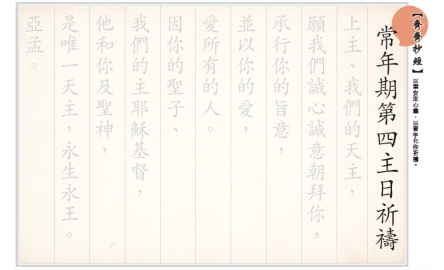 【齊齊抄經】
以筆安定心靈,以寫字化作祈禱。
常年期第四主日祈禱
上主、我們的天主,
願我們誠心誠意朝拜你,
承行你的旨意,
並以你的愛,
愛所有的人。
因你的聖子、
我們的主耶穌基督,
他和你及聖神,
是唯一天主,永生永王。
亞孟。